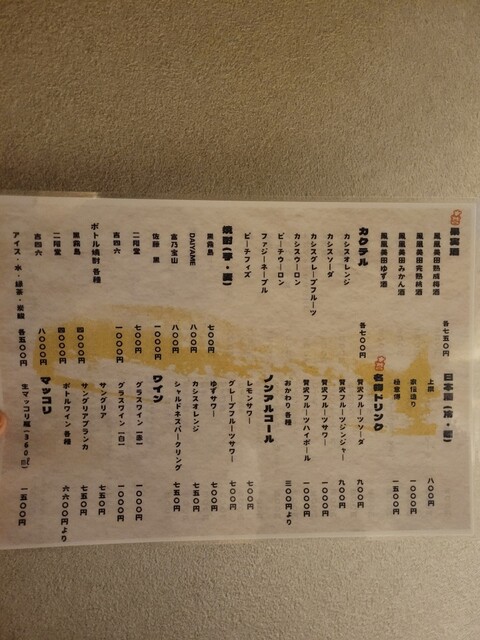 果実酒
鳳凰美田熟成梅酒
鳳凰美田完熟桃酒
鳳凰美田みかん酒
鳳凰美田ゆず酒
各七五〇円
カクテル
カシスオレンジ
カシスソーダ
カシスグレープフルーツ
カシスウーロン
ピーチウーロン
ファジーネーブル
ピーチフィズ
各七〇〇円
焼酎(芋・麦)
黒霧島
七〇〇円
DAIYAME
八〇〇円
富乃宝山
八〇〇円
佐藤 黒
一〇〇〇円
二階堂
七〇〇円
吉四六
一〇〇〇円
ボトル焼酎各種
黒霧島
四〇〇〇円
二階堂
四〇〇〇円
吉四六
八〇〇〇円
アイス・水・緑茶・炭酸
各五〇〇円
日本酒(冷・燗)
上撰
八〇〇円
一〇〇〇円
極意傳
一五〇〇円
名物ドリンク
贅沢フルーツソーダ
九〇〇円
贅沢フルーツジンジャー
九〇〇円
贅沢フルーツサワー
一〇〇〇円
贅沢フルーツハイボール
一〇〇〇円
おかわり各種
三〇〇円より
ノンアルコール
レモンサワー
七〇〇円
グレープフルーツサワー
七〇〇円
ゆずサワー
七〇〇円
カシスオレンジ
七五〇円
シャルドネスパークリング
七五〇円
ワイン
グラスワイン(赤)
一〇〇〇円
グラスワイン(白)
一〇〇〇円
サングリア
七五〇円
サングリアブランカ
七五〇円
ボトルワイン各種
六六〇〇円より
マッコリ
生マッコリ瓶(360ml)
一五〇〇円